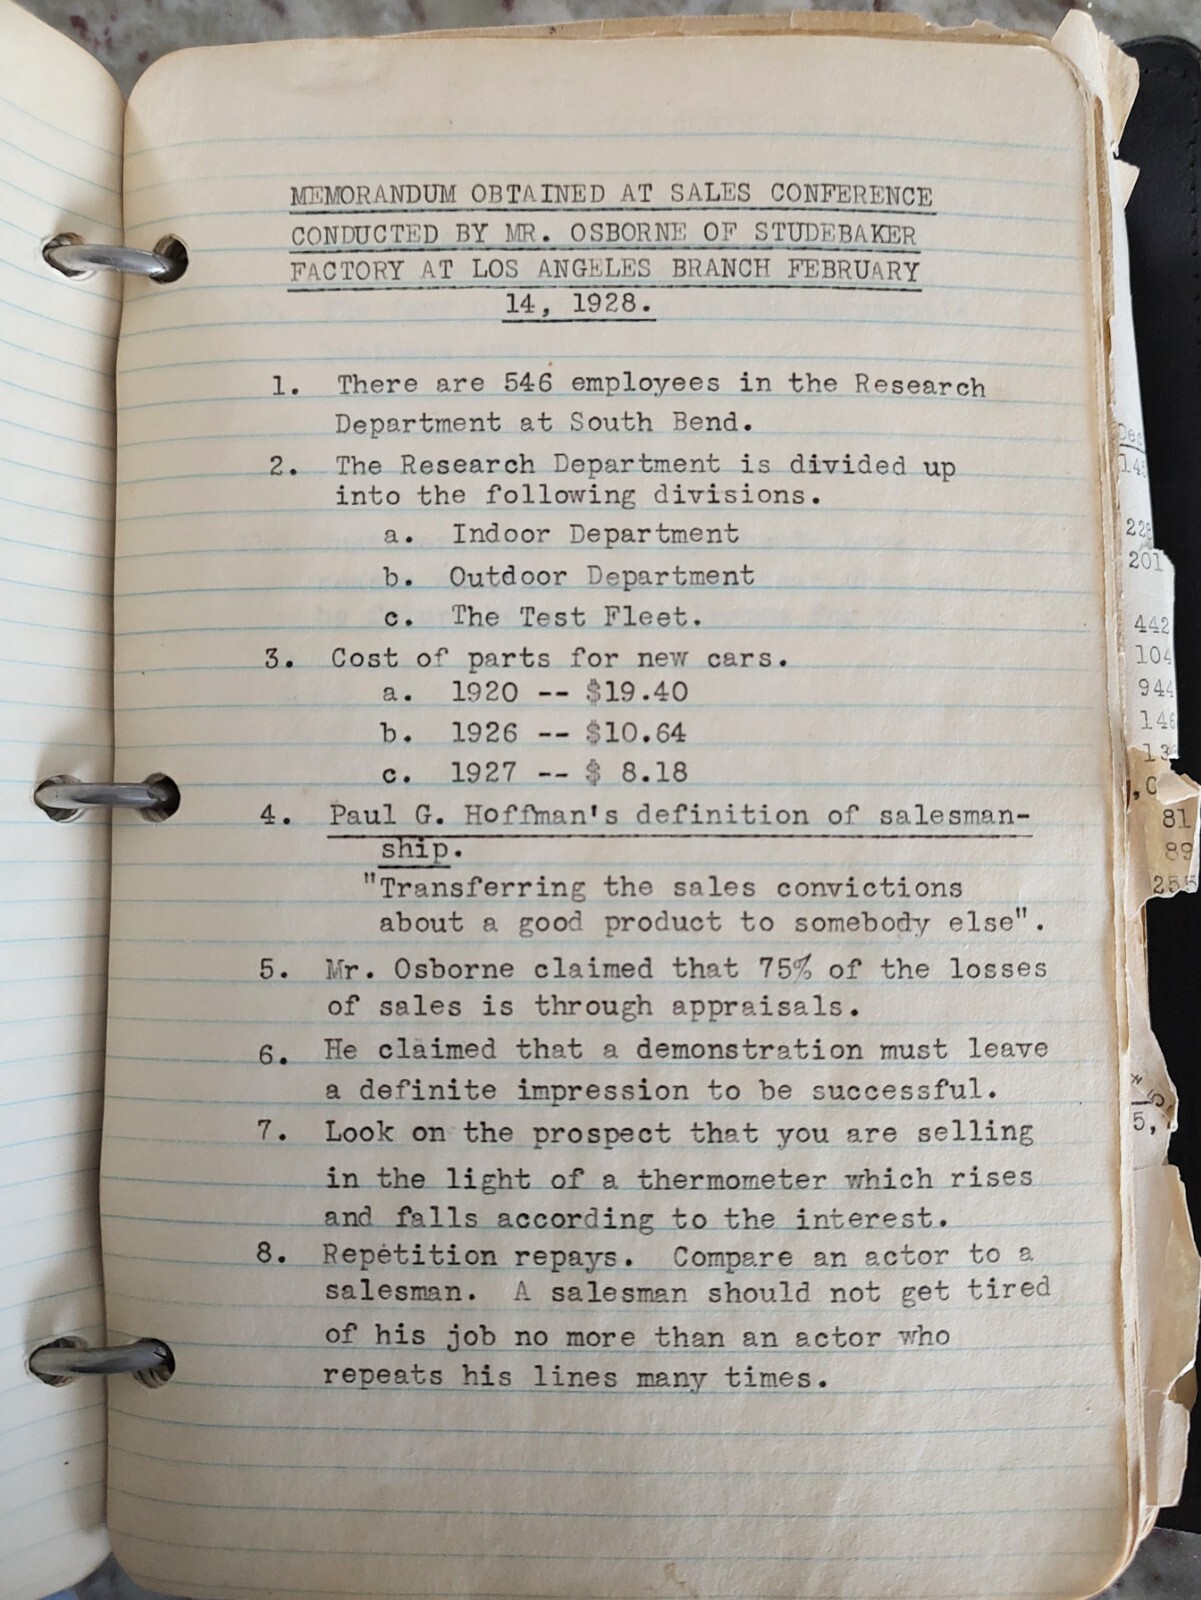 MEMORANDUM OBTAINED AT SALES CONFERENCE
CONDUCTED BY MR. OSBORNE OF STUDEBAKER
FACTORY AT LOS ANGELES BRANCH FEBRUARY
14, 1928.
1. There are 546 employees in the Research
Department at South Bend.
2. The Research Department is divided up
into the following divisions.
a. Indoor Department
b. Outdoor Department
c. The Test Fleet.
3. Cost of parts for new cars.
a. 1920 -- $19.40
b. 1926 -- $10.64
c. 1927 -- $ 8.18
4. Paul G. Hoffman's definition of salesman-
ship.
"Transferring the sales convictions
about a good product to somebody else".
5. Mr. Osborne claimed that 75% of the losses
of sales is through appraisals.
6. He claimed that a demonstration must leave
a definite impression to be successful.
7. Look on the prospect that you are selling
in the light of a thermometer which rises
and falls according to the interest.
8. Repetition repays. Compare an actor to a
salesman. A salesman should not get tired
of his job no more than an actor who
repeats his lines many times.
201
442
104
944
81
89
255